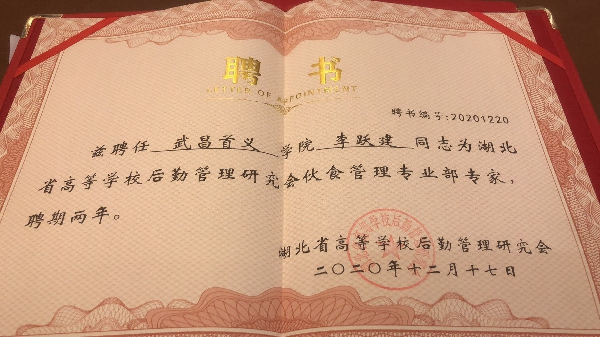 聘书
LETTER OF APPOINTMENT
聘书编号:20201220
兹聘任 武昌首义 学院 李跃建 同志为湖北
省高等学校后勤管理研究会伙食管理专业部专家，
聘期两年。
湖北省高等学校后勤管理研究会
二〇二〇年十二月十七日